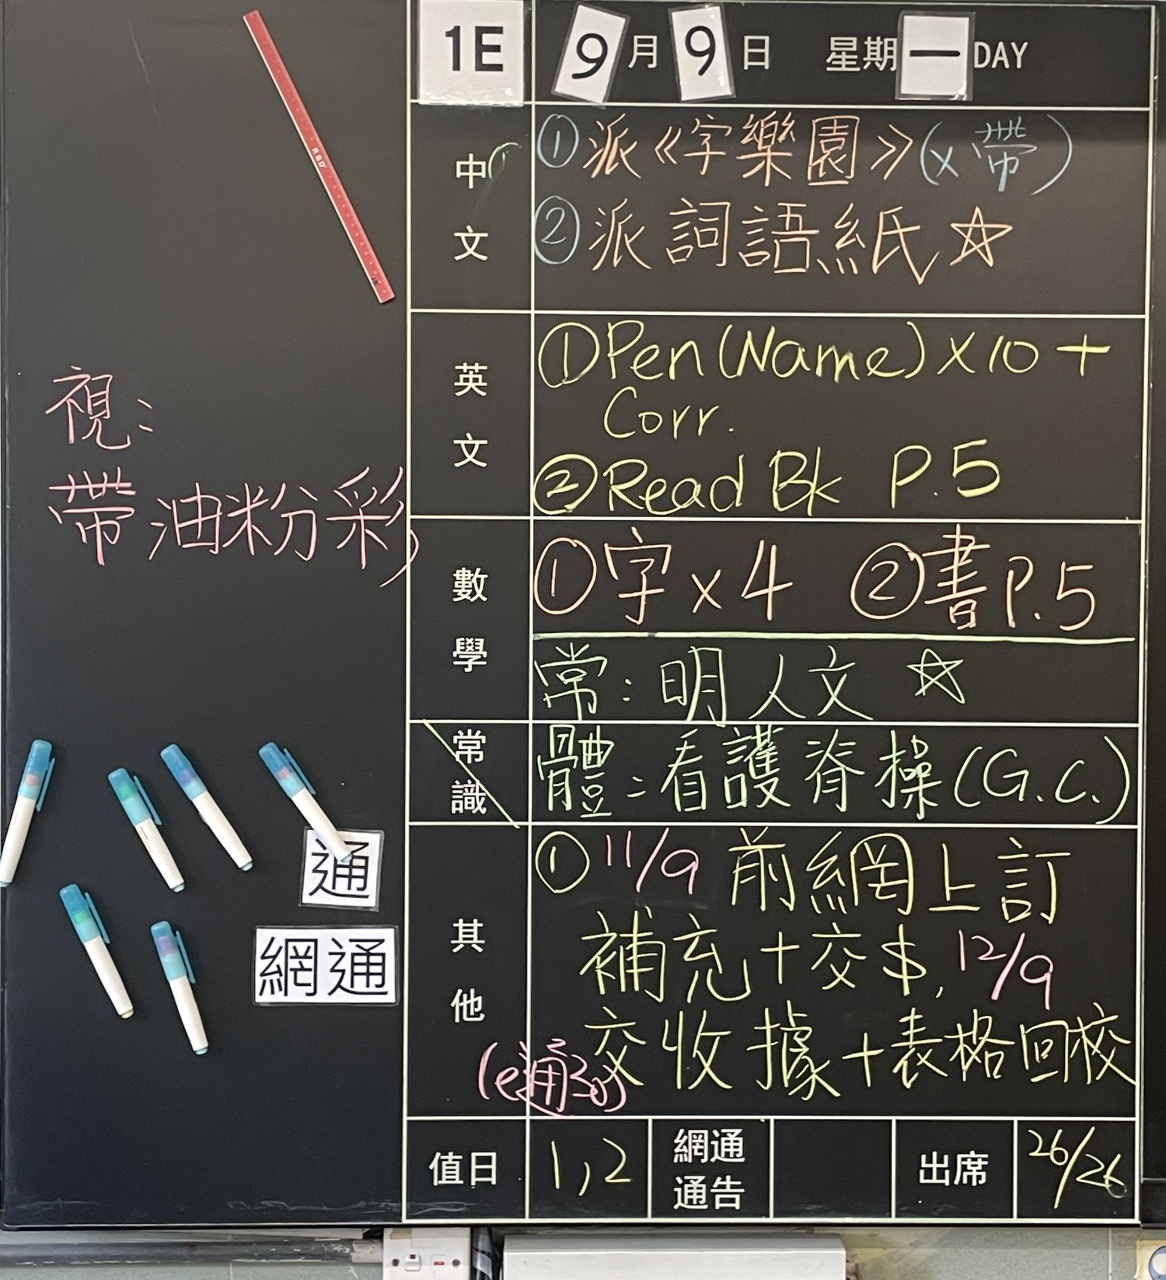 1E 9月9日 星期一DAY
中文
①派《字樂園》(x帶)
②派詞語紙☆
英文
①Pen(Name)×10+
Corr.
②Read Bk P.5
數學
①字×4 ②書P.5
常:明人文☆
常識
體:看護脊操(G.C.)
其他
①11/9前網上訂
補充+交$,12/9
交收據+表格回校
值日 1,2 網通通告 出席 26/26
視:
帶油粉彩
通
網通